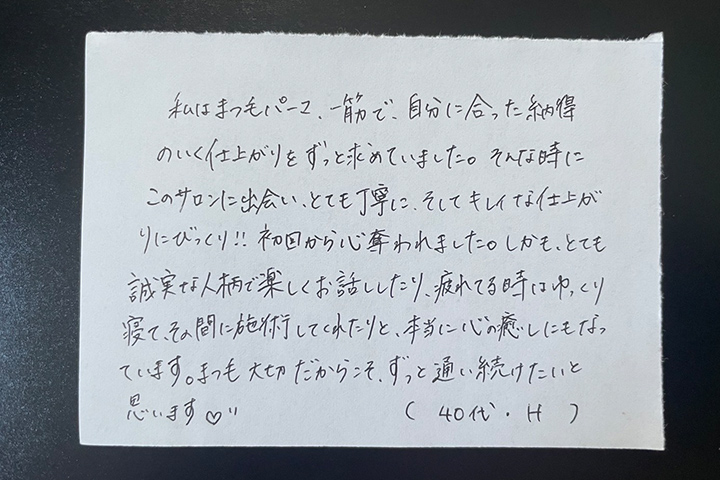 私はまつ毛パーマ、一筋で、自分に合った納得
のいく仕上がりをずっと求めていました。そんな時に
このサロンに出会い、とても丁寧に、そしてキレイな仕上が
りにびっくり!! 初回から心奪われました。しかも、とても
誠実な人柄で楽しくお話ししたり、疲れてる時はゆっくり
寝て、その間に施術してくれたりと、本当に心の癒しにもなっ
ています。まつ毛大切だからこそ、ずっと通い続けたいと
思います♡〃 (40代・H)